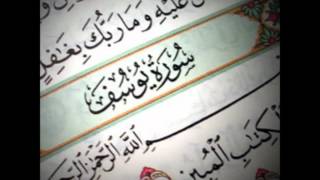 عَلَيْهِ وَمَا رَبُّكَ بِغَٰفِلٍ
سُورَةُ يُوسُفَ
اللَّهِ الرَّحْمَٰنِ الرَّحِيمِ
الْكِتَٰبِ الْمُبِينِ